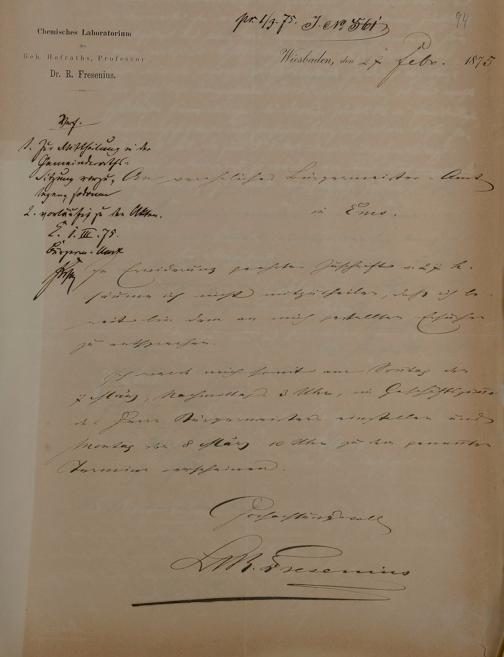 pr. 1/3. 75. J. No 561
94
Chemisches Laboratorium
des
Geh. Hofraths, Professor
Dr. R. Fresenius.
Wiesbaden, den 27 Febr. 1875
Verf.
1. Zur Mittheilung in der
Gemeinderaths-
Sitzung
2. vorläufig zu den Akten.
E. 1. III. 75.
Bürgerm. Amt
An verehrliches Bürgermeister-Amt
in Ems.
In Erwiderung geehrter Zuschrift v. 27 h.
säume ich nicht mitzutheilen, daß ich be-
reit bin dem an mich gestellten Ersuchen
zu entsprechen.
Ich werde mich somit am Sonntag den
7 März, Nachmittags 3 Uhr, im Geschäftszimmer
des Herrn Bürgermeisters einstellen und
Montag den 8 März 10 Uhr zu dem genannten
Termine erscheinen.
Hochachtungsvoll
Dr R. Fresenius